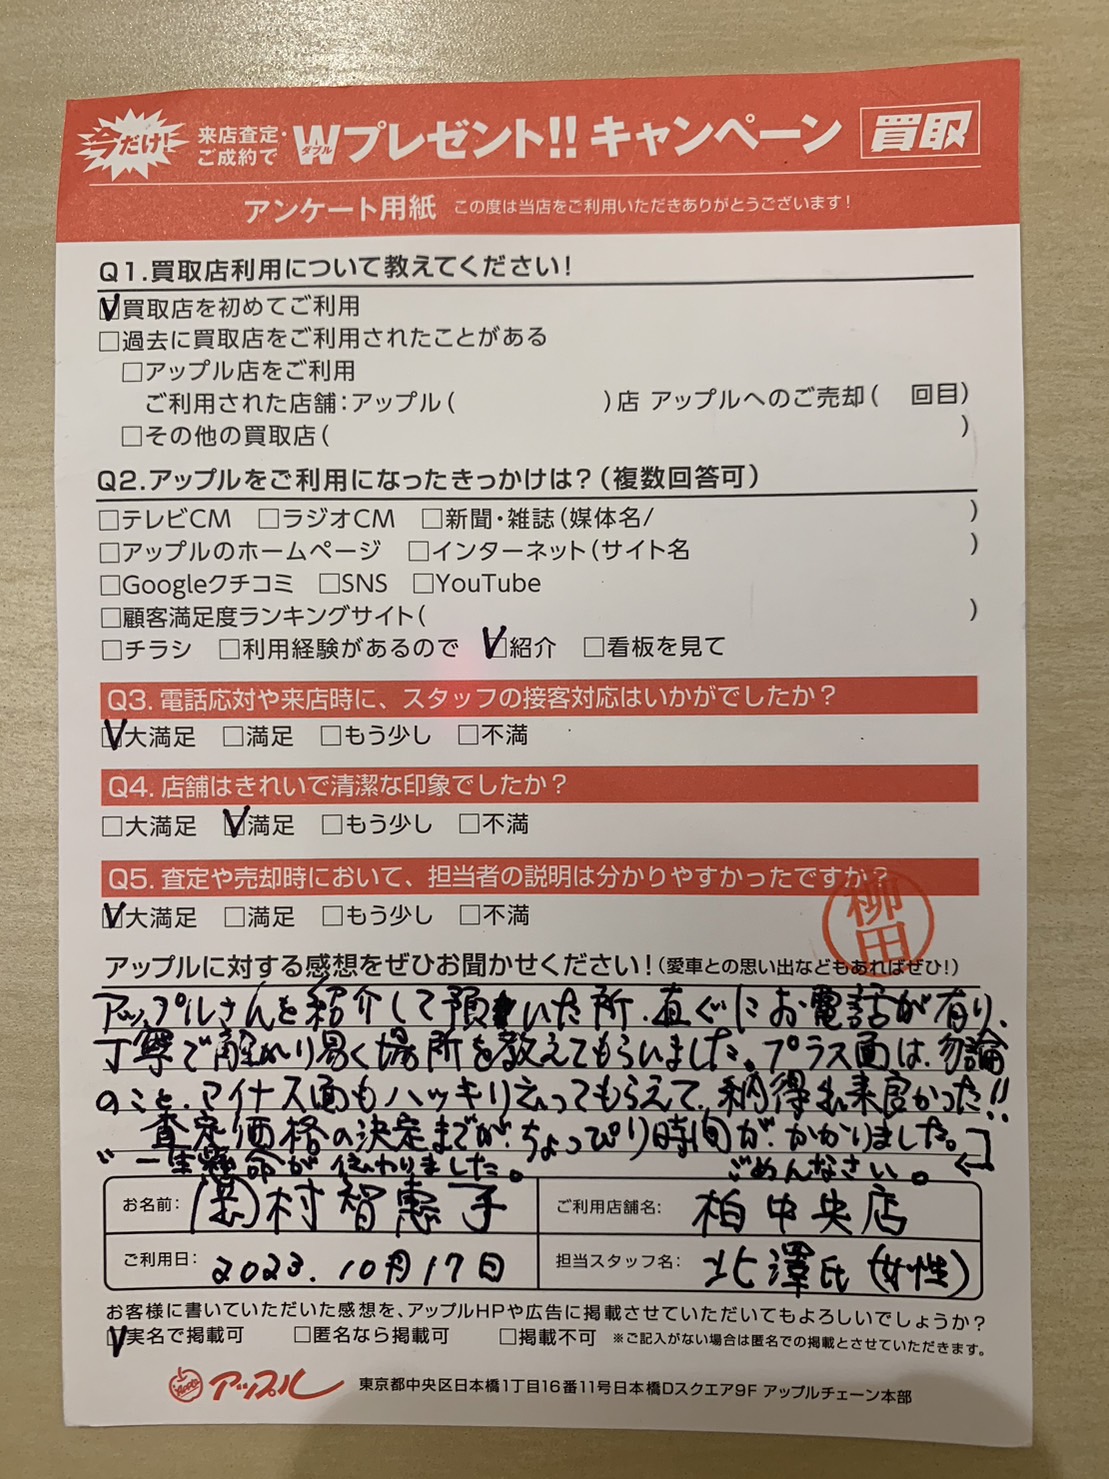 今だけ!
来店査定・
ご成約で
Wプレゼント!! キャンペーン 買取
ダブル
アンケート用紙 この度は当店をご利用いただきありがとうございます!
Q1.買取店利用について教えてください!
☑買取店を初めてご利用
□過去に買取店をご利用されたことがある
□アップル店をご利用
ご利用された店舗:アップル( )店 アップルへのご売却( 回目)
□その他の買取店( )
Q2.アップルをご利用になったきっかけは?(複数回答可)
□テレビCM □ラジオCM □新聞・雑誌(媒体名/ )
□アップルのホームページ □インターネット(サイト名 )
□Googleクチコミ □SNS □YouTube
□顧客満足度ランキングサイト( )
□チラシ □利用経験があるので ☑紹介 □看板を見て
Q3. 電話応対や来店時に、スタッフの接客対応はいかがでしたか?
☑大満足 □満足 □もう少し □不満
Q4. 店舗はきれいで清潔な印象でしたか?
□大満足 ☑満足 □もう少し □不満
Q5. 査定や売却時において、担当者の説明は分かりやすかったですか?
☑大満足 □満足 □もう少し □不満
柳田
アップルに対する感想をぜひお聞かせください!(愛車との思い出などもあればぜひ!)
アップルさんを紹介して頂いた所、直ぐにお電話が有り、
丁寧で解かり易く場所を教えてもらいました。プラス面は、勿論
のこと、マイナス面もハッキリ云ってもらえて、納得出来良かった!!
査定価格の決定までが、ちょっぴり時間が、かかりました。
一生懸命が伝わりました。 ごめんなさい。
お名前: 村智恵子 ご利用店舗名: 柏中央店
ご利用日: 2023.10月17日 担当スタッフ名: 北澤氏(女性)
お客様に書いていただいた感想を、アップルHPや広告に掲載させていただいてもよろしいでしょうか?
☑実名で掲載可 □匿名なら掲載可 □掲載不可 ※ご記入がない場合は匿名での掲載とさせていただきます。
アップル 東京都中央区日本橋1丁目16番11号日本橋Dスクエア9F アップルチェーン本部